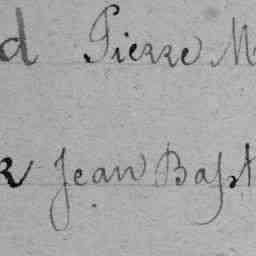 d Pierre M
r Jean Bapt